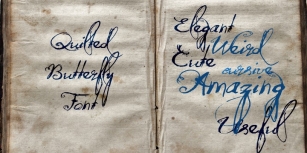 Quilted
Butterfly
Font
Elegant
Weird
& Cute
cursive
Amazing
Useful